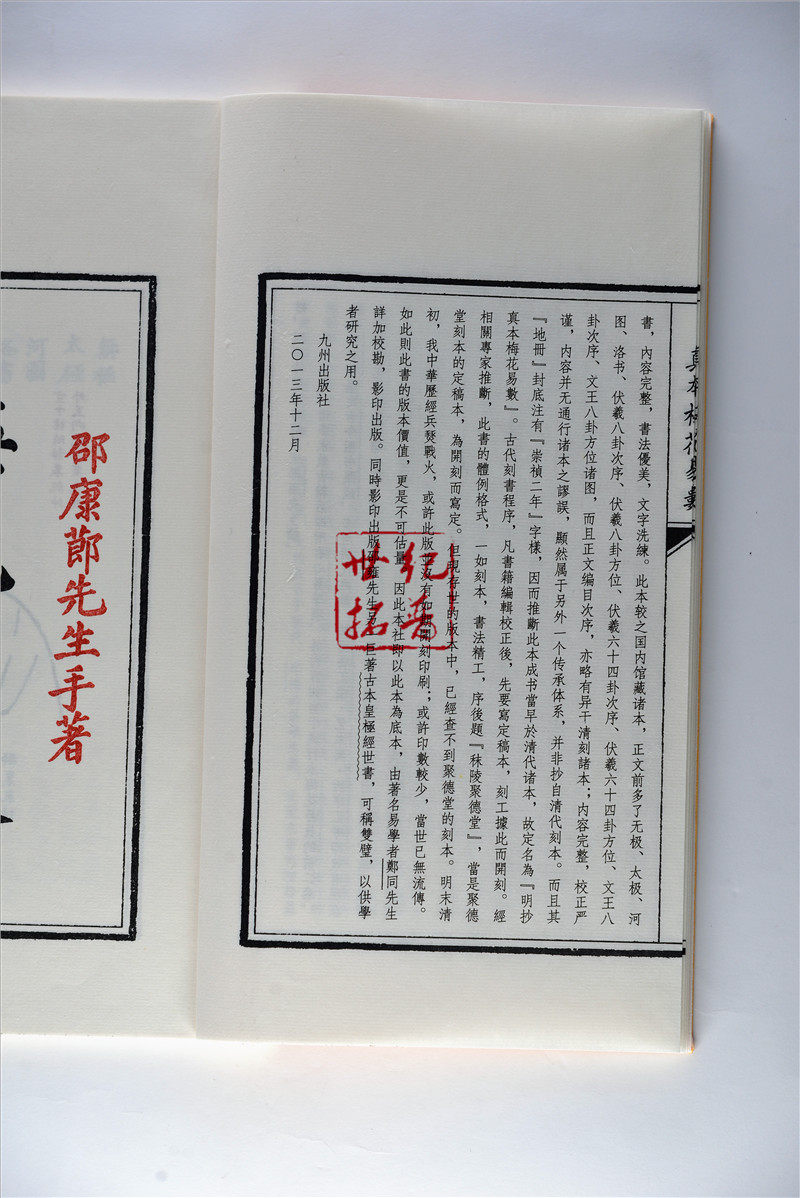 真本梅花易數
書，內容完整，書法優美，文字洗練。此本较之国内馆藏诸本，正文前多了无极、太极、河
图、洛书、伏羲八卦次序、伏羲八卦方位、伏羲六十四卦次序、伏羲六十四卦方位、文王八
卦次序、文王八卦方位诸图，而且正文编目次序，亦略有异于清刻諸本；内容完整，校正严
谨，内容并无通行诸本之謬誤，顯然属于另外一个传承体系，并非抄自清代刻本。而且其
『地冊』封底注有『崇禎二年』字樣，因而推斷此本成书當早於清代诸本，故定名為『明抄
真本梅花易數』。古代刻書程序，凡書籍編輯校正後，先要寫定稿本，刻工據此而開刻。經
相關專家推斷，此書的體例格式，一如刻本，書法精工，序後題『秣陵聚德堂』，當是聚德
堂刻本的定稿本，為開刻而寫定。但現存世的版本中，已經查不到聚德堂的刻本。明末清
初，我中華歷經兵燹戰火，或許此版並沒有如期開刻印刷；或許印數較少，當世已無流傳。
如此則此書的版本價值，更是不可估量。因此本社即以此本為底本，由著名易學者鄭同先生
詳加校勘，影印出版。同時影印出版邵雍先生另一巨著古本皇極經世書，可稱雙璧，以供學
者研究之用。
九州出版社
二〇一三年十二月
世纪
拓
邵康節先生手著